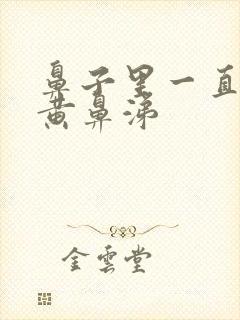 鼻子里一直
黄鼻涕
金雲堂